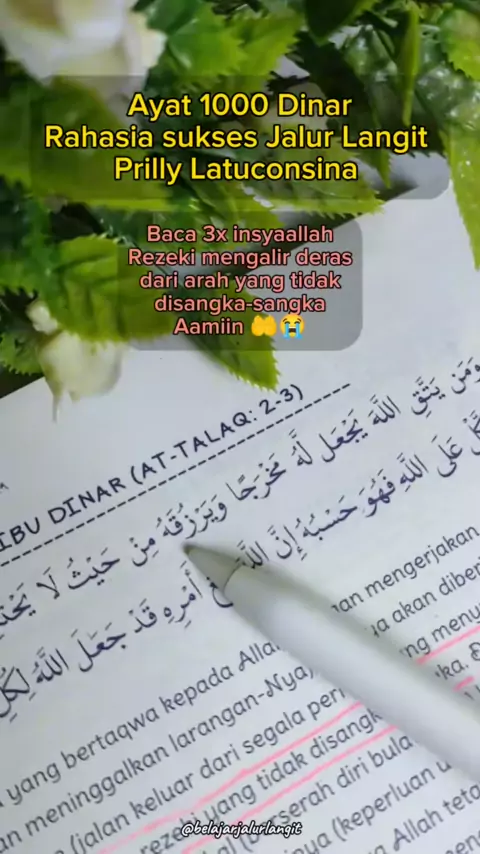 Ayat 1000 Dinar
Rahasia sukses Jalur Langit
Prilly Latuconsina
Baca 3x insyaallah
Rezeki mengalir deras
dari arah yang tidak
disangka-sangka
Aamiin 🤲😭
IBU DINAR (AT-TALAQ: 2-3)
وَمَن يَتَّقِ اللَّهَ يَجْعَل لَّهُ مَخْرَجًا وَيَرْزُقْهُ مِنْ حَيْثُ لَا
عَلَى اللَّهِ فَهُوَ حَسْبُهُ إِنَّ اللَّهَ أَمْرِهِ قَدْ جَعَلَ اللَّهُ لِكُلِّ
yang bertaqwa kepada Alla mengerjakan
meninggalkan larangan-Nya akan diber
(jalan keluar dari segala per
rezeki yang tidak disangk
serah diri bula
(keperluan
Allah teta
@belajarjalurlangit